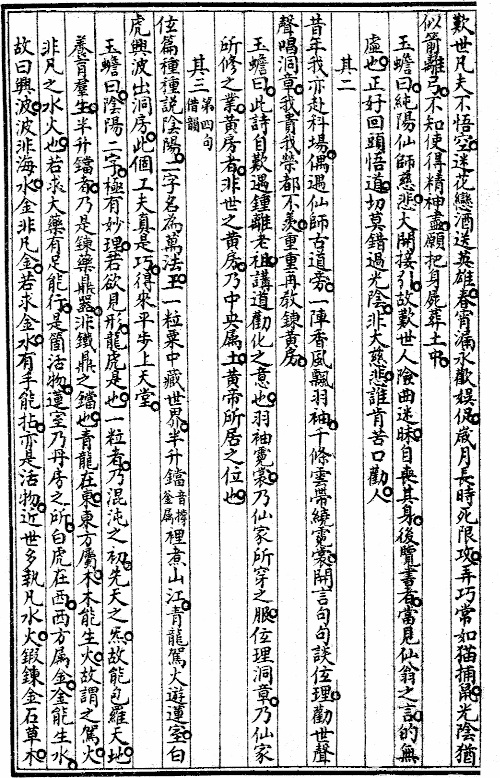 歎世凡夫不悟空迷花戀酒送英雄春宵漏永歡娛促歲月長時死限攻弄巧常如猫捕鼠光陰猶
似箭離弓不知使得精神盡願把身屍葬土中
玉蟾曰純陽仙師慈悲大開接引故歎世人陰曲迷昧自喪其身後覽書者當見仙翁之言的無
虛也正好回頭悟道切莫錯過光陰非大慈悲誰肯苦口勸人
其二
昔年我亦赴科場偶遇仙師古道旁一陣香風飄羽袖千條雲帶繞霓裳開言句句談伭理勸世聲
聲唱洞章我貴我榮都不羨重重再教鍊黃房
玉蟾曰此詩自歎遇鍾離老祖講道勸化之意也羽袖霓裳乃仙家所穿之服伭理洞章乃仙家
所修之業黃房者非世之黃房乃中央屬土黃帝所居之位也
其三 第四句借韻
伭篇種種說陰陽二字名為萬法王一粒粟中藏世界半升鐺音撐釜屬裡煮山江青龍駕火遊蓮室白
虎興波出洞房此個工夫真是巧得來平步上天堂
玉蟾曰陰陽二字極有妙理若欲見形龍虎是也一粒者乃混沌之初先天之炁故能包羅天地
養育羣生半升鐺者乃是鍊藥鼎器非鐵鼎之鐺也青龍在東東方屬木木能生火故謂之駕火
非凡之水火也若求大藥有足能行是箇活物蓮室乃丹房之所白虎在西西方屬金金能生水
故曰興波波非海水金非凡金若求金水有手能拈亦是活物近世多執凡水火鍛鍊金石草木